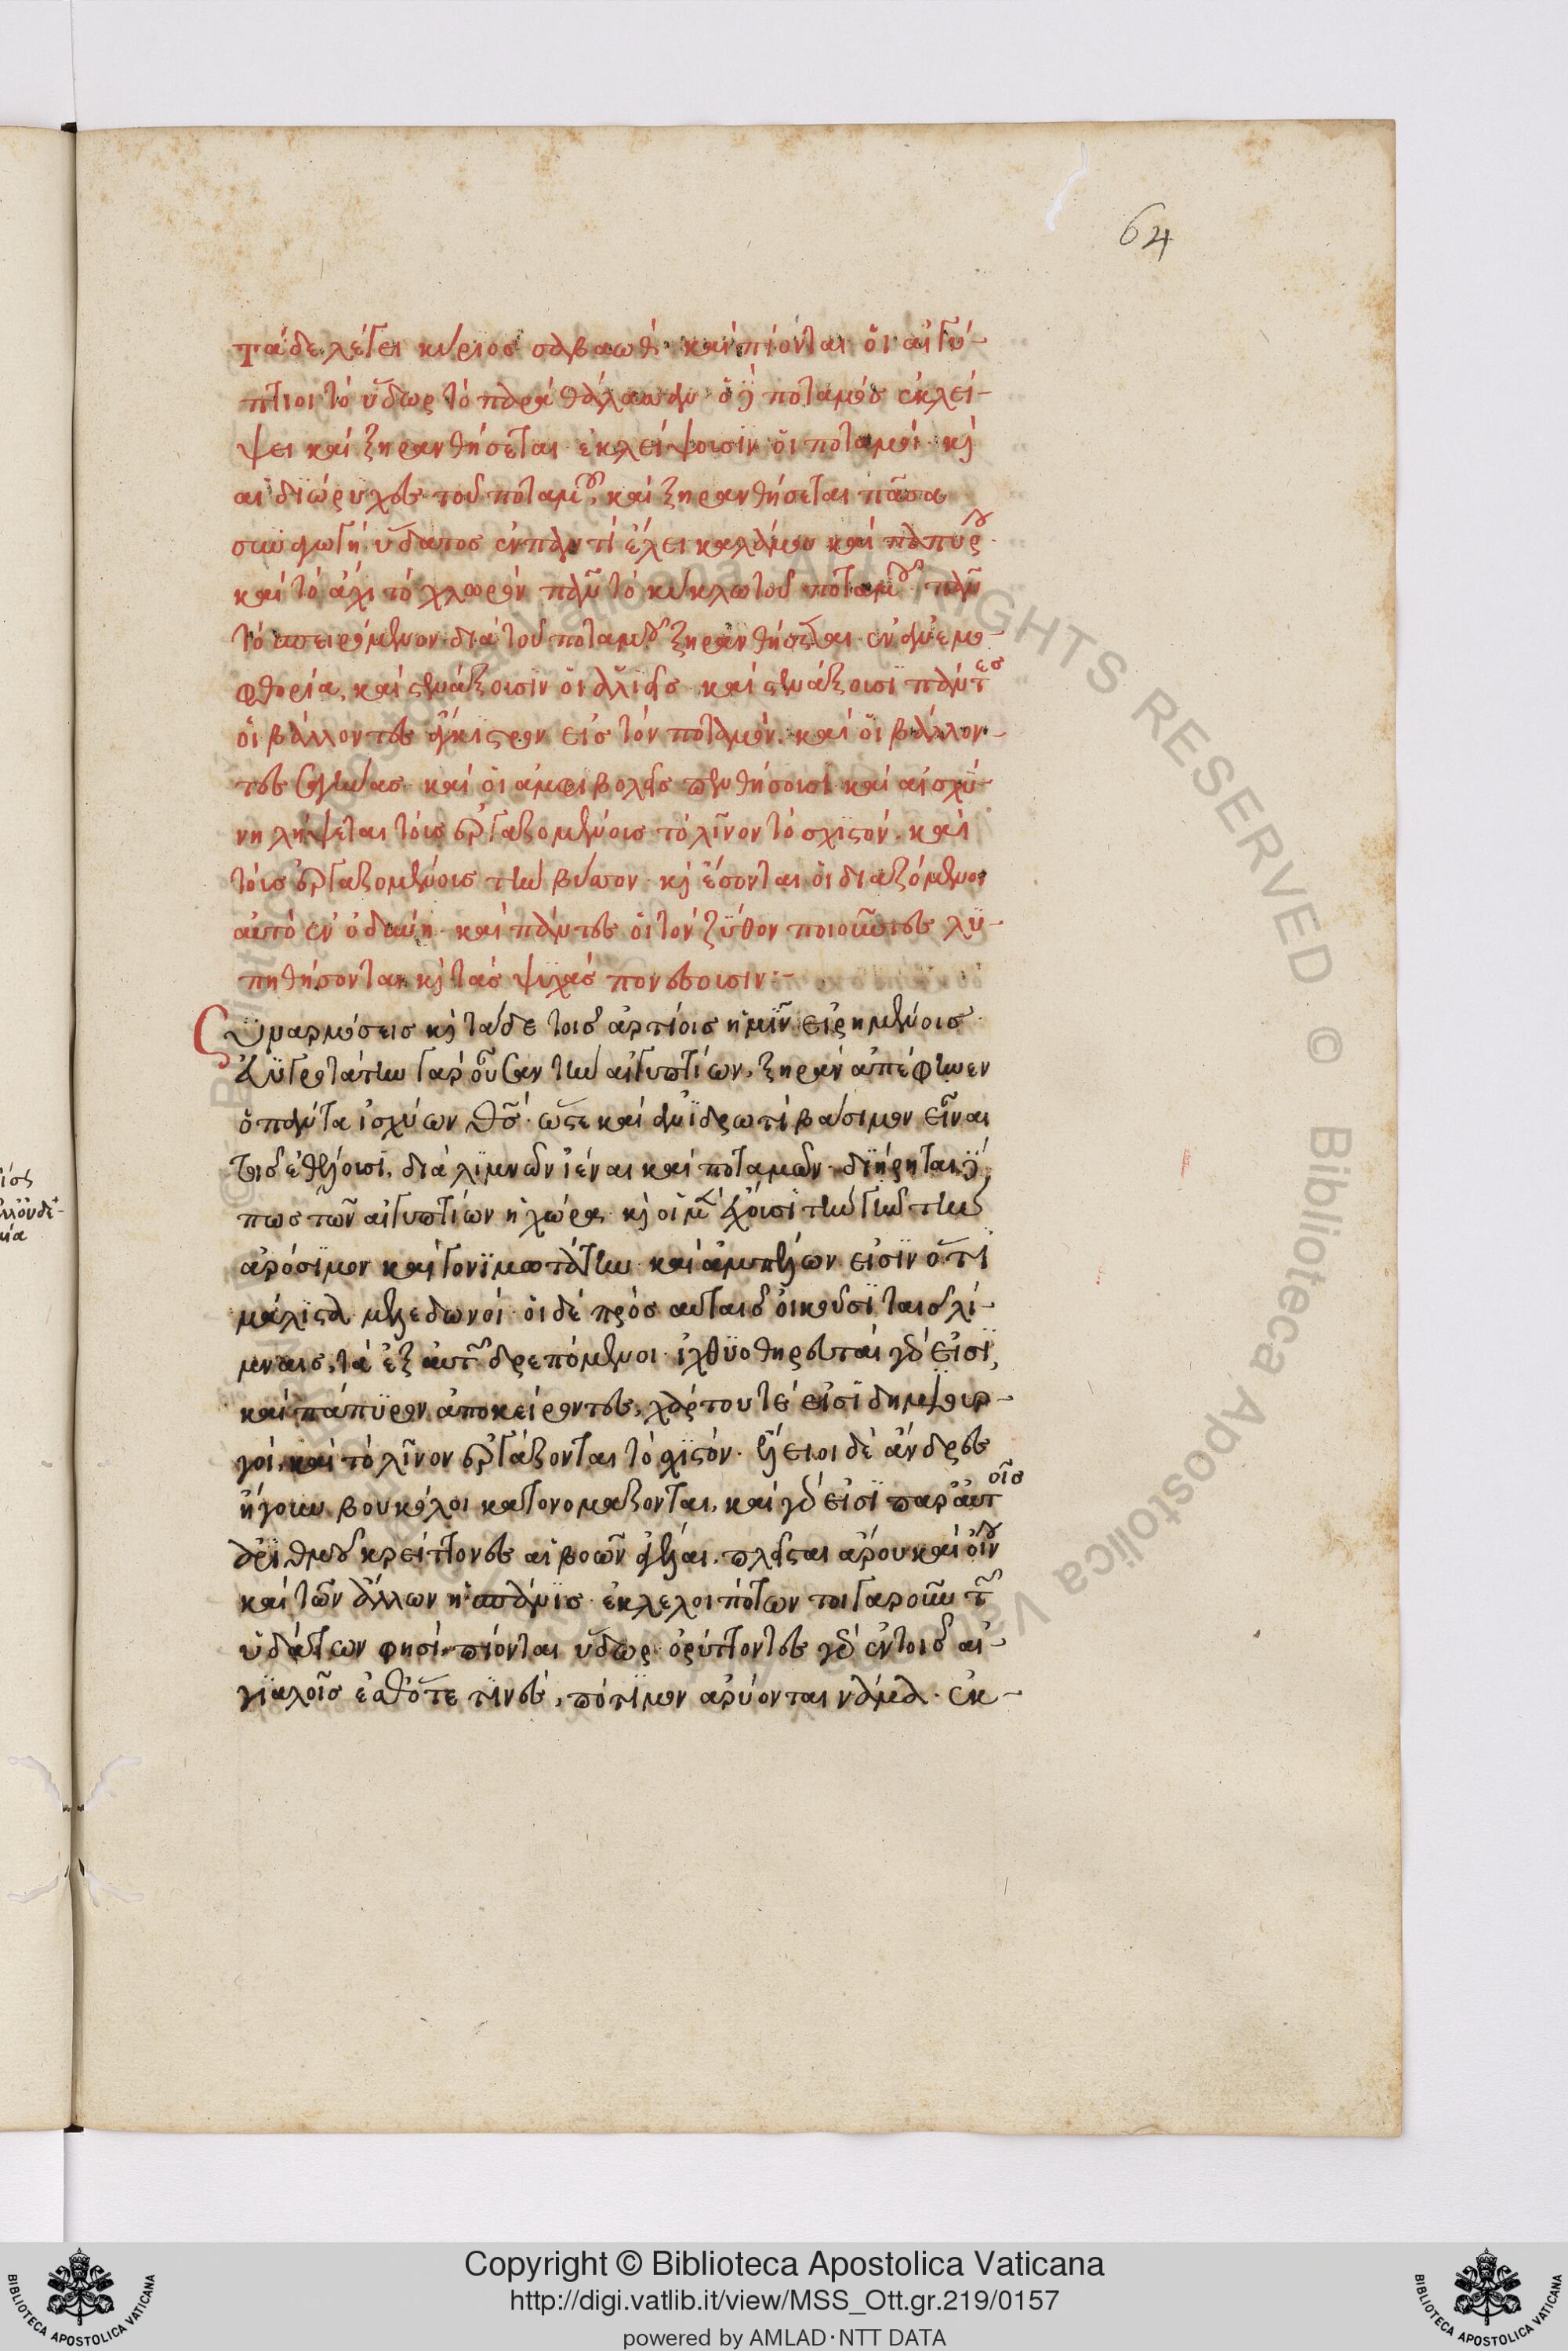 64
τάδε λέγει κύριος σαβαώθ· καὶ πίονται οἱ αἰγύ-
πτιοι τὸ ὕδωρ τὸ παρὰ θάλασσαν· ὁ δὲ ποταμὸς ἐκλεί-
ψει καὶ ξηρανθήσεται· ἐκλείψουσιν οἱ ποταμοὶ· καὶ
αἱ διώρυχες τοῦ ποταμοῦ, καὶ ξηρανθήσεται πᾶσα
συναγωγὴ ὕδατος ἐν παντὶ ἕλει καλάμου καὶ παπύρου·
καὶ τὸ ἄχι τὸ χλωρὸν πᾶν τὸ κύκλω τοῦ ποταμοῦ· πᾶν
τὸ σπειρόμενον διὰ τοῦ ποταμοῦ ξηρανθήσεται ἀνεμο-
φθορία, καὶ στενάξουσιν οἱ ἁλιεῖς· καὶ στενάξουσι πάντες
οἱ βάλλοντες ἄγκιστρον εἰς τὸν ποταμόν· καὶ οἱ βάλλον-
τες σαγήνας· καὶ οἱ ἀμφιβολεῖς πενθήσουσι· καὶ αἰσχύ-
νη λήψεται τοὺς ἐργαζομένους τὸ λῖνον τὸ σχιστόν· καὶ
τοὺς ἐργαζομένους τὴν βύσσον· καὶ ἔσονται οἱ διαζόμενοι
αὐτὸ ἐν ὀδύνῃ· καὶ πάντες οἱ τὸν ζύθον ποιοῦντες λυ-
πηθήσονται καὶ τὰς ψυχὰς πονέσουσιν:-
Συναρμόσεις καὶ τάδε τοῖς ἀρτίοις ἡμῖν εἰρημένοις·
ὑγροτάτην γὰρ οὖσαν τὴν αἰγυπτίων, ξηρὰν ἀπέφηνεν
ὁ πάντα ἰσχύων θεός· ὥστε καὶ ἀνιδρωτὶ βάσιμον εἶναι
τοῖς ἐθέλουσι, διὰ λιμνῶν ἰέναι καὶ ποταμῶν· διῄρηται δέ
πως τῶν αἰγυπτίων ἡ χώρα· καὶ οἱ μὲν ἔχουσι τὴν γῆν τὴν
ἀρόσιμον καὶ γονιμωτάτην· καὶ ἀμπέλων εἰσὶν ὅτι
μάλιστα μελεδωνοί· οἱ δὲ πρὸς αὐταῖς οἰκοῦσι ταῖς λί-
μναις, τὰ ἐξ αὐτῶν δρεπόμενοι· ἰχθυοθηρευταὶ γάρ εἰσι,
καὶ πάπυρον ἀποκείροντες, χόρτου τέ εἰσι δημιουρ-
γοὶ, καὶ τὸ λῖνον ἐργάζονται τὸ σχιστόν·
ἤγουν βουκόλοι κατονομάζονται, καὶ γάρ εἰσι παρ' αὐτοῖς
ἀριθμοῦ κρείττονες αἱ βοῶν ἀγέλαι.
καὶ τῶν ἄλλων ἡ ἐκλελοιπότων τοιγαροῦν τῶν
ὑδάτων φησὶ πίονται ὕδωρ· ὀρύττοντες γὰρ ἐν τοῖς αἰ-
γιαλοῖς ἔσθ' ὅτε τινὲς, πότιμον ἀρύονται νάμα· ἐκ-
Copyright © Biblioteca Apostolica Vaticana
http://digi.vatlib.it/view/MSS_Ott.gr.219/0157
powered by AMLAD·NTT DATA